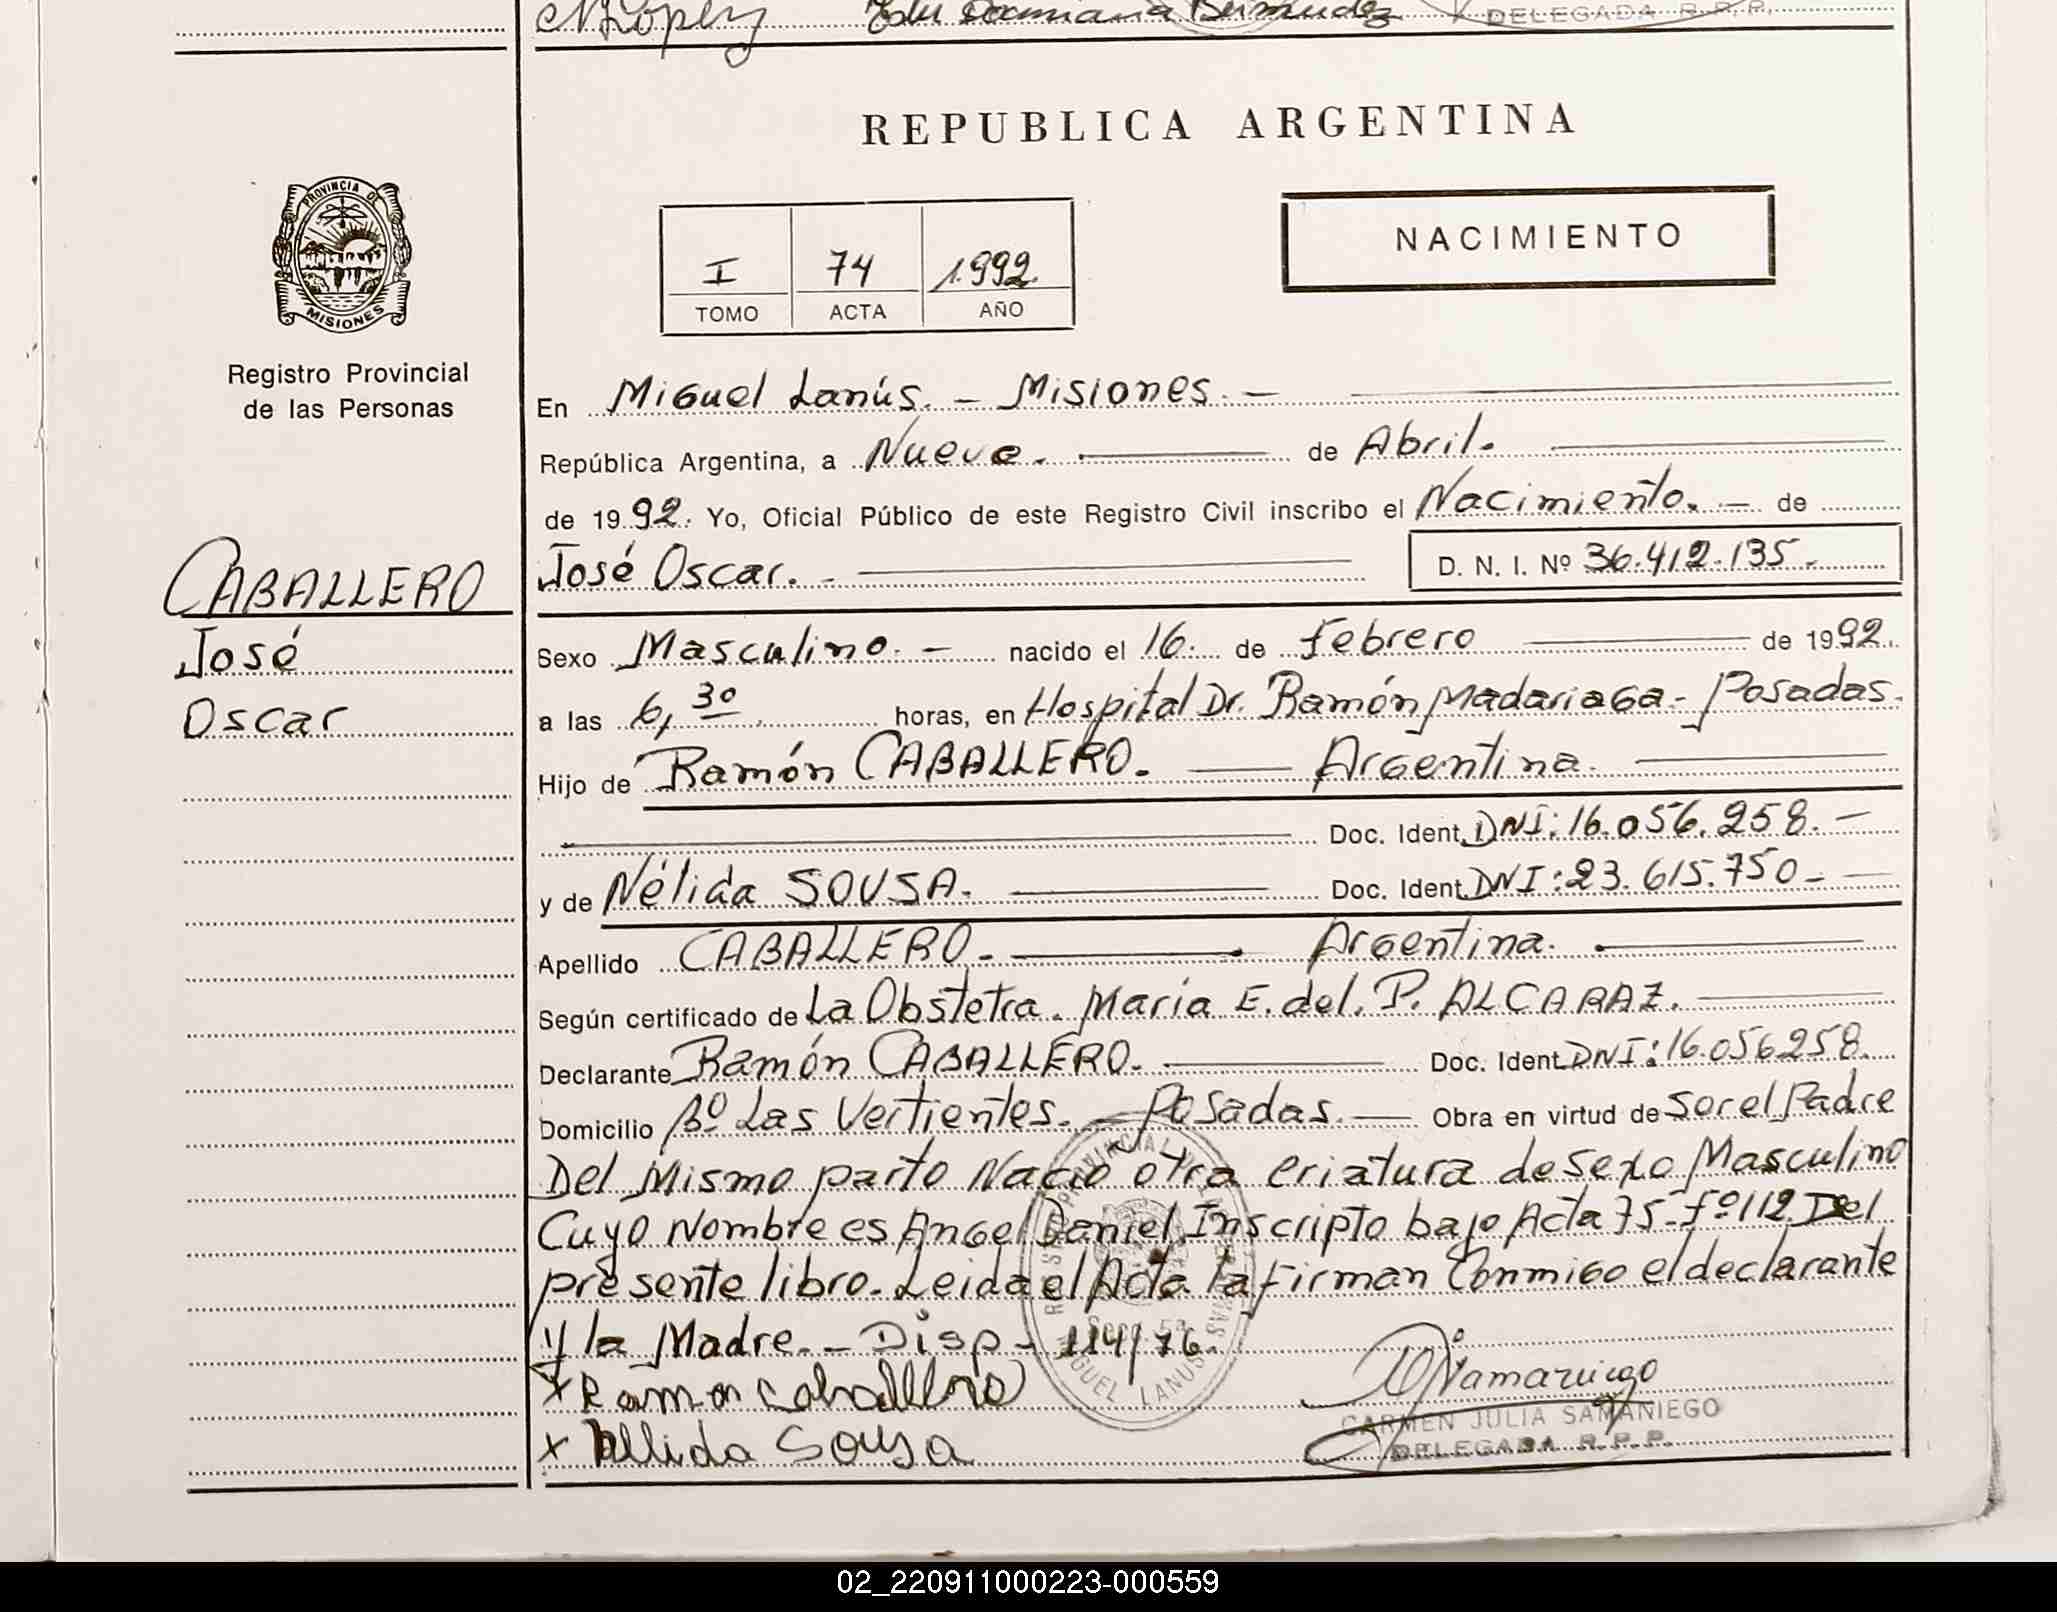 NLopez Eda Damiana Bermudez DELEGADA R.P.P.
REPUBLICA ARGENTINA
PROVINCIA DE
MISIONES
NACIMIENTO
I 74 1.992.
TOMO ACTA AÑO
Registro Provincial
de las Personas
En Miguel Lanús. - Misiones. -
República Argentina, a Nueve. de Abril.
de 1992. Yo, Oficial Público de este Registro Civil inscribo el Nacimiento. - de
José Oscar. - D. N. I. Nº 36.412.135.-
CABALLERO
José
Oscar
Sexo Masculino. - nacido el 16. de Febrero de 1992.
a las 6,30. horas, en Hospital Dr. Ramón Madariaga - Posadas.
Hijo de Ramón CABALLERO. Argentina.
Doc. Ident. DNI: 16.056.258. -
y de Nélida SOUSA. Doc. Ident. DNI: 23.615.750 -
Apellido CABALLERO. Argentina.
Según certificado de La Obstetra. María E. del. P. ALCARAZ.
Declarante Ramón CABALLERO. Doc. Ident. DNI: 16.056258.
Domicilio Bº Las Vertientes. - Posadas. Obra en virtud de Ser el Padre
Del Mismo parto Nació otra criatura de sexo Masculino
Cuyo Nombre es Angel Daniel Inscripto bajo Acta 75-Fº112 Del
presente libro. Leida el Acta la firman Conmigo el declarante
y la Madre. - Disp - 114/76.
x Ramon Caballero
x Nellida Sousa
CARMEN JULIA SAMANIEGO
DELEGADA R.P.P.
MIGUEL LANUS
02_220911000223-000559